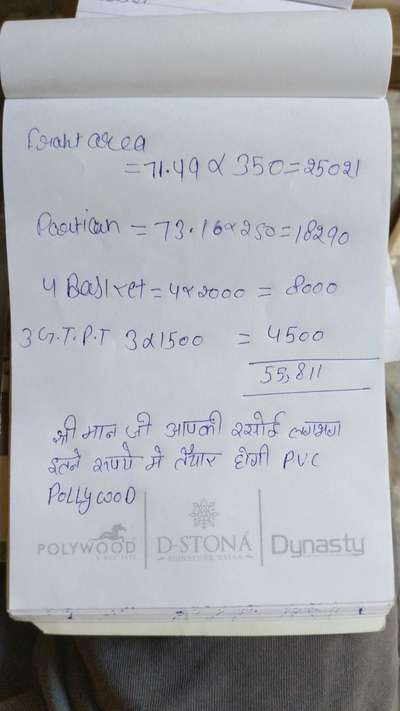 Fraht area
= 71.49 × 350 = 25021
Partican = 73.16 × 250 = 18290
4 Basket = 4 × 2000 = 8000
3 G.T.P.T 3 × 1500 = 4500
55,811
श्री मान जी आपकी रसोई लगभग
इतने रूपये मे तैयार होगी PVC
POLLYWOOD
POLYWOOD SINCE D-STONA SIGNATURE Dynasty